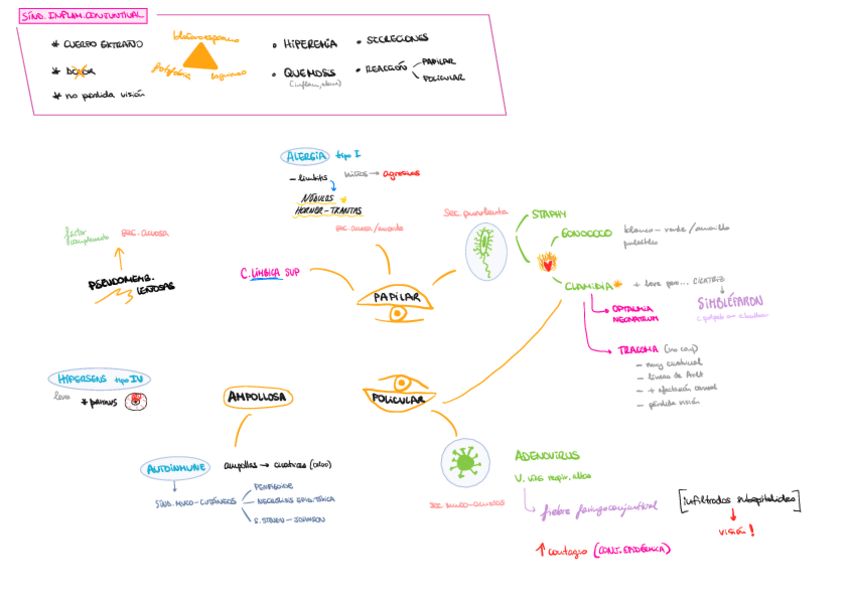 SÍND. INFLAM. CONJUNTIVAL
* CUERPO EXTRAÑO
* DOLOR
* no perdida visión
blefaroespasmo
fotofobia
lagrimeo
• HIPEREMIA
• QUEMOSIS
• SECRECIONES
• REACCIÓN
PAPILAR
FOLICULAR
ALERGIA tipo I
- limbitis
niños → agresivas
NÓDULOS
HORNER-TRANTAS
sec. acuosa/mucosa
factor
complemento
sec. acuosa
PSEUDOMEMB.
LEÑOSAS
C. LÍMBICA SUP
PAPILAR
sec. purulenta
STAPHY
GONOCOCO
blanco-verde/amarillo
CLAMIDIA
+ leve pero... CICATRIZ
SIMBLÉFARON
OFTALMIA
NEONATRUM
TRACOMA
- muy cicatricial
- líneas de Arlt
- + afectación corneal
- pérdida visión
HIPERSENS tipo IV
leve
AMPOLLOSA
FOLICULAR
AUTOINMUNE
ampollas → cicatrices
SÍND. MUCO-CUTÁNEOS
PENFIGOIDE
NECROLISIS EPIDÉRMICA
S. STEVEN-JOHNSON
sec. muco-acuosa
ADENOVIRUS
V. vías respir. altas
fiebre faringoconjuntival
[infiltrados subepiteliales]
visión!
↑ contagio (CONJ. EPIDÉMICA)